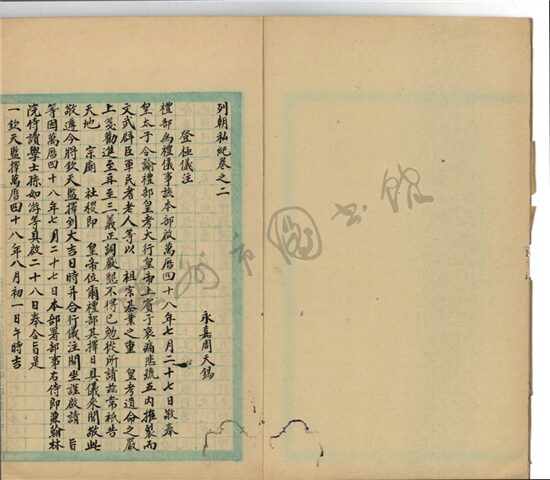 列朝私紀卷之二
永嘉周天錫
登極儀注
禮部為禮儀事該本部啟萬曆四十八年七月二十七日敬奉
皇太子令諭禮部皇考大行皇帝上賓予哀痛悲號五內摧裂而
文武群臣軍民耆老人等以 祖宗基業之重 皇考遺命之嚴
上箋勸進至再至三義正詞嚴懇不得已勉從所請茲常祗告
天地 宗廟 社稷即 皇帝位爾禮部其擇日具儀來聞敬此
敬遵今將欽天監擇到大吉日時并合行儀注開坐謹啟請 旨
等因萬曆四十八年七月二十七日本部署部事右侍郎兼翰林
院侍讀學士孫如游等具啟二十八日奉令旨是
一欽天監擇萬曆四十八年八月初一日午時吉
州市圖書館